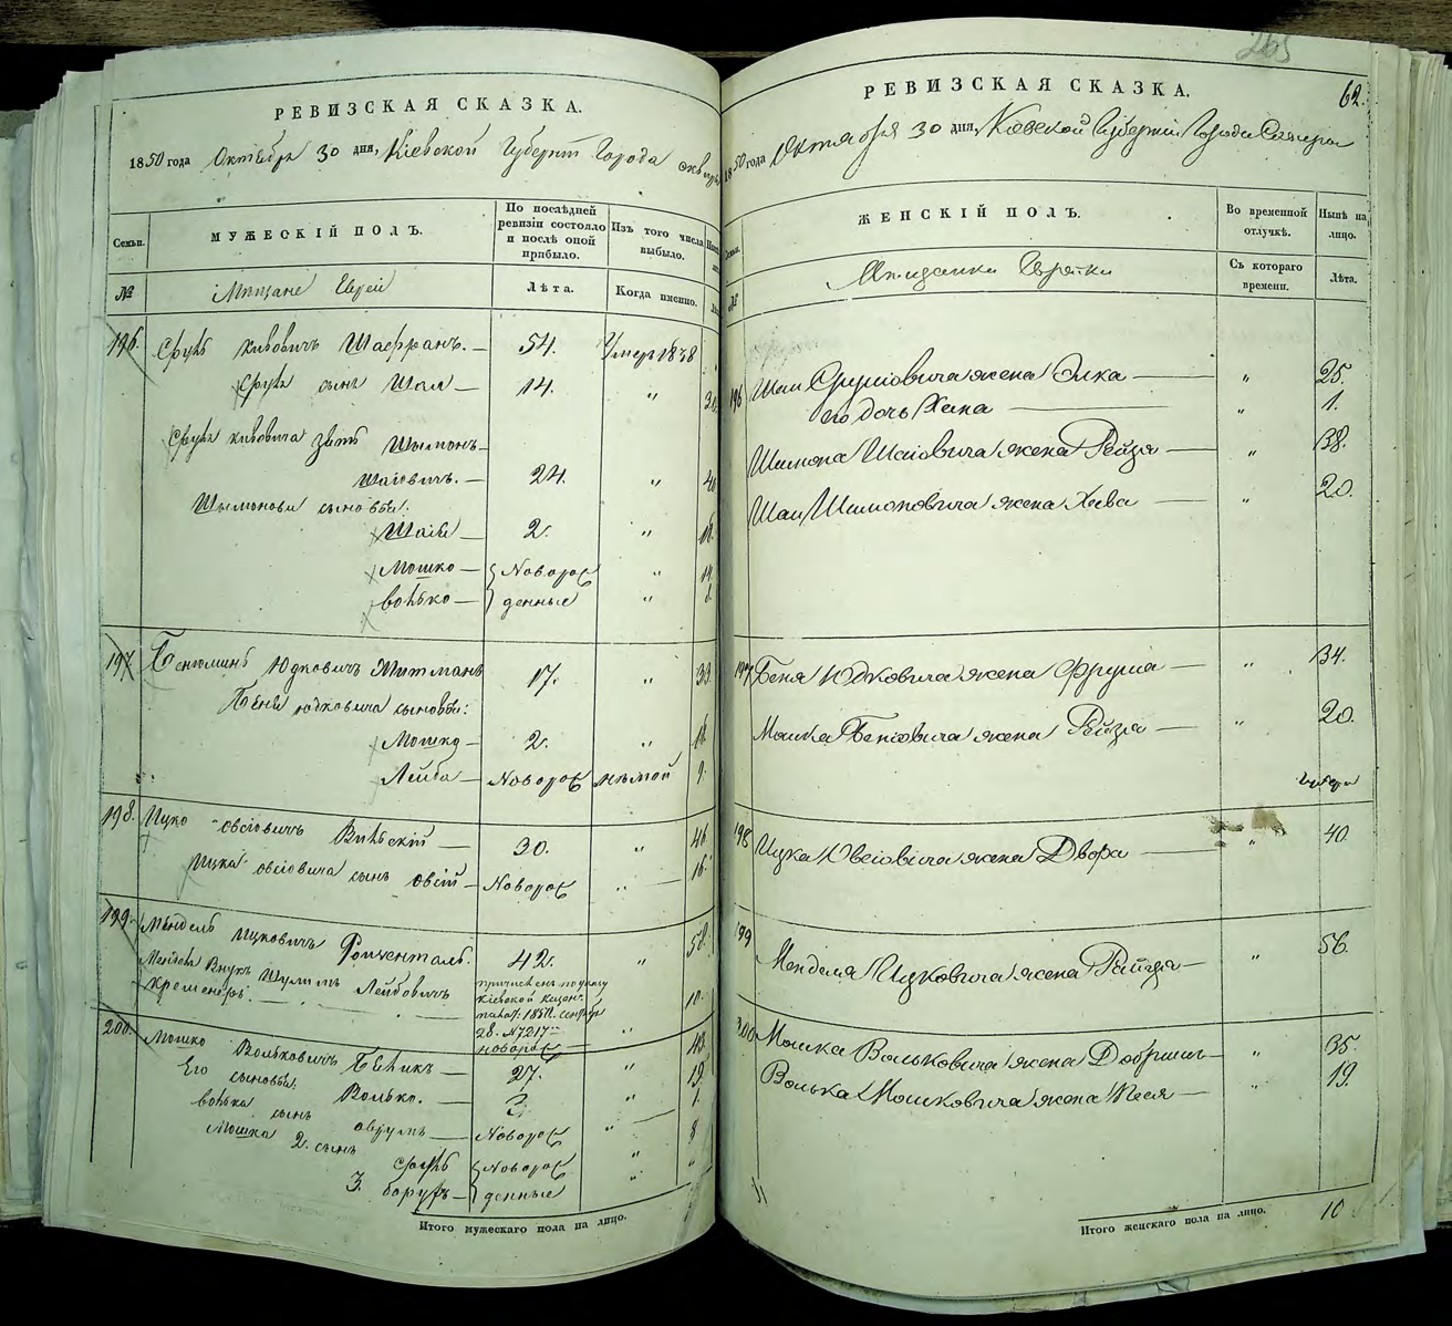 РЕВИЗСКАЯ СКАЗКА.
1850 года Октября 30 дня, Кіевской Губерніи Города
Семьи.
МУЖЕСКІЙ ПОЛЪ.
По послѣдней ревизіи состояло и послѣ оной прибыло.
Изъ того числа выбыло.
№
Мѣщане Евреи
Лѣта.
Когда именно.
196. Сруль Шафранъ. — 54. Умеръ 1838
Сруля сынъ Шая — 14. "
Сруля зять Шымонъ —
Шаіовичъ. — 24. "
Шымоновы сыновья:
Шаія — 2. "
Мошко — Новорож "
Волько — денные "
197 Бенюминъ Юдковичъ 17. " 33.
Бени Юдковича сыновья:
Мошко — 2. "
Лейба — Новорож нѣмой 9.
198. Ицко Овсіовичъ — 30. " 46
Ицка Овсіовича сынъ Овсій — Новорож " — 16.
199. Мендель Ицковичъ 42. " 58.
Менделя Внукъ Шулимъ Лейбовичъ
причисленъ по указу
кіевской казен.
28. №7217
новорож — " 10.
200. Мошко Вольковичъ — 27. " 43.
Его сыновья: Волько. — 3. " 19.
Волька сынъ Аврумъ — Новорож " — 1.
Мошка 2. сынъ Сруль Новорож " 8
3. Борухъ — денные "
Итого мужескаго пола на лицо.
265
62.
РЕВИЗСКАЯ СКАЗКА.
1850 года Октября 30 дня, Кіевской Губерніи Города Сквиры
ЖЕНСКІЙ ПОЛЪ.
Во временной отлучкѣ.
Нынѣ на лицо.
№
Мѣщанки Еврейки
Съ котораго времени.
Лѣта.
196 Шаи Сруліовича жена Элка — " 25.
его дочь Хана — " 1.
Шимона Шаіовича жена Рейзя — " 38.
Шаи Шимоновича жена Хава — " 20.
197 Беня Юдковича жена Фрума — " 34.
Мошка Беніовича жена Рейзя — " 20.
198 ИцкаЮвсіовича жена Двора — " 40.
199 Менделя Ицковича жена Рейзя — " 56.
200 Мошка Вольковича жена Добришъ — " 35.
Волька Мошковича жена Песя — " 19.
Итого женскаго пола на лицо. 10